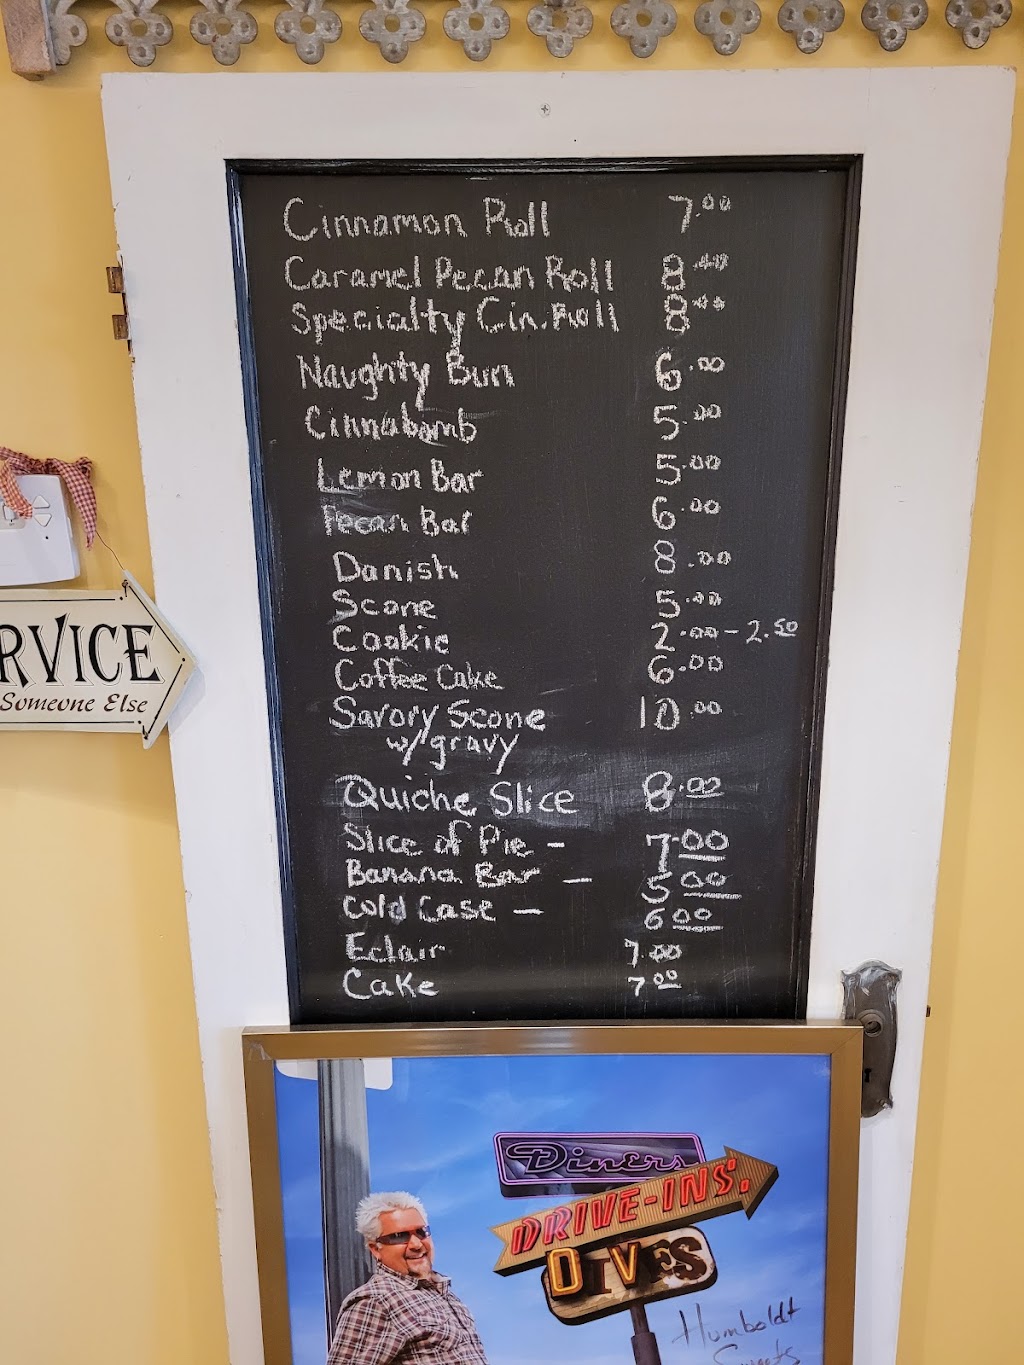 Cinnamon Roll 7.00
Caramel Pecan Roll 8.00
Specialty Cin. Roll 8.00
Naughty Bun 6.00
Cinnabomb 5.00
Lemon Bar 5.00
Pecan Bar 6.00
Danish 8.00
Scone 5.00
Cookie 2.00 - 2.50
Coffee Cake 6.00
Savory Scone 10.00
w/ gravy
Quiche Slice 8.00
Slice of Pie - 7.00
Banana Bar - 5 00
Cold Case - 6 00
Eclair 7.00
Cake 7 00
RVICE
Someone Else
Diners
DRIVE-INS,
DIVES
Humboldt
Sweets